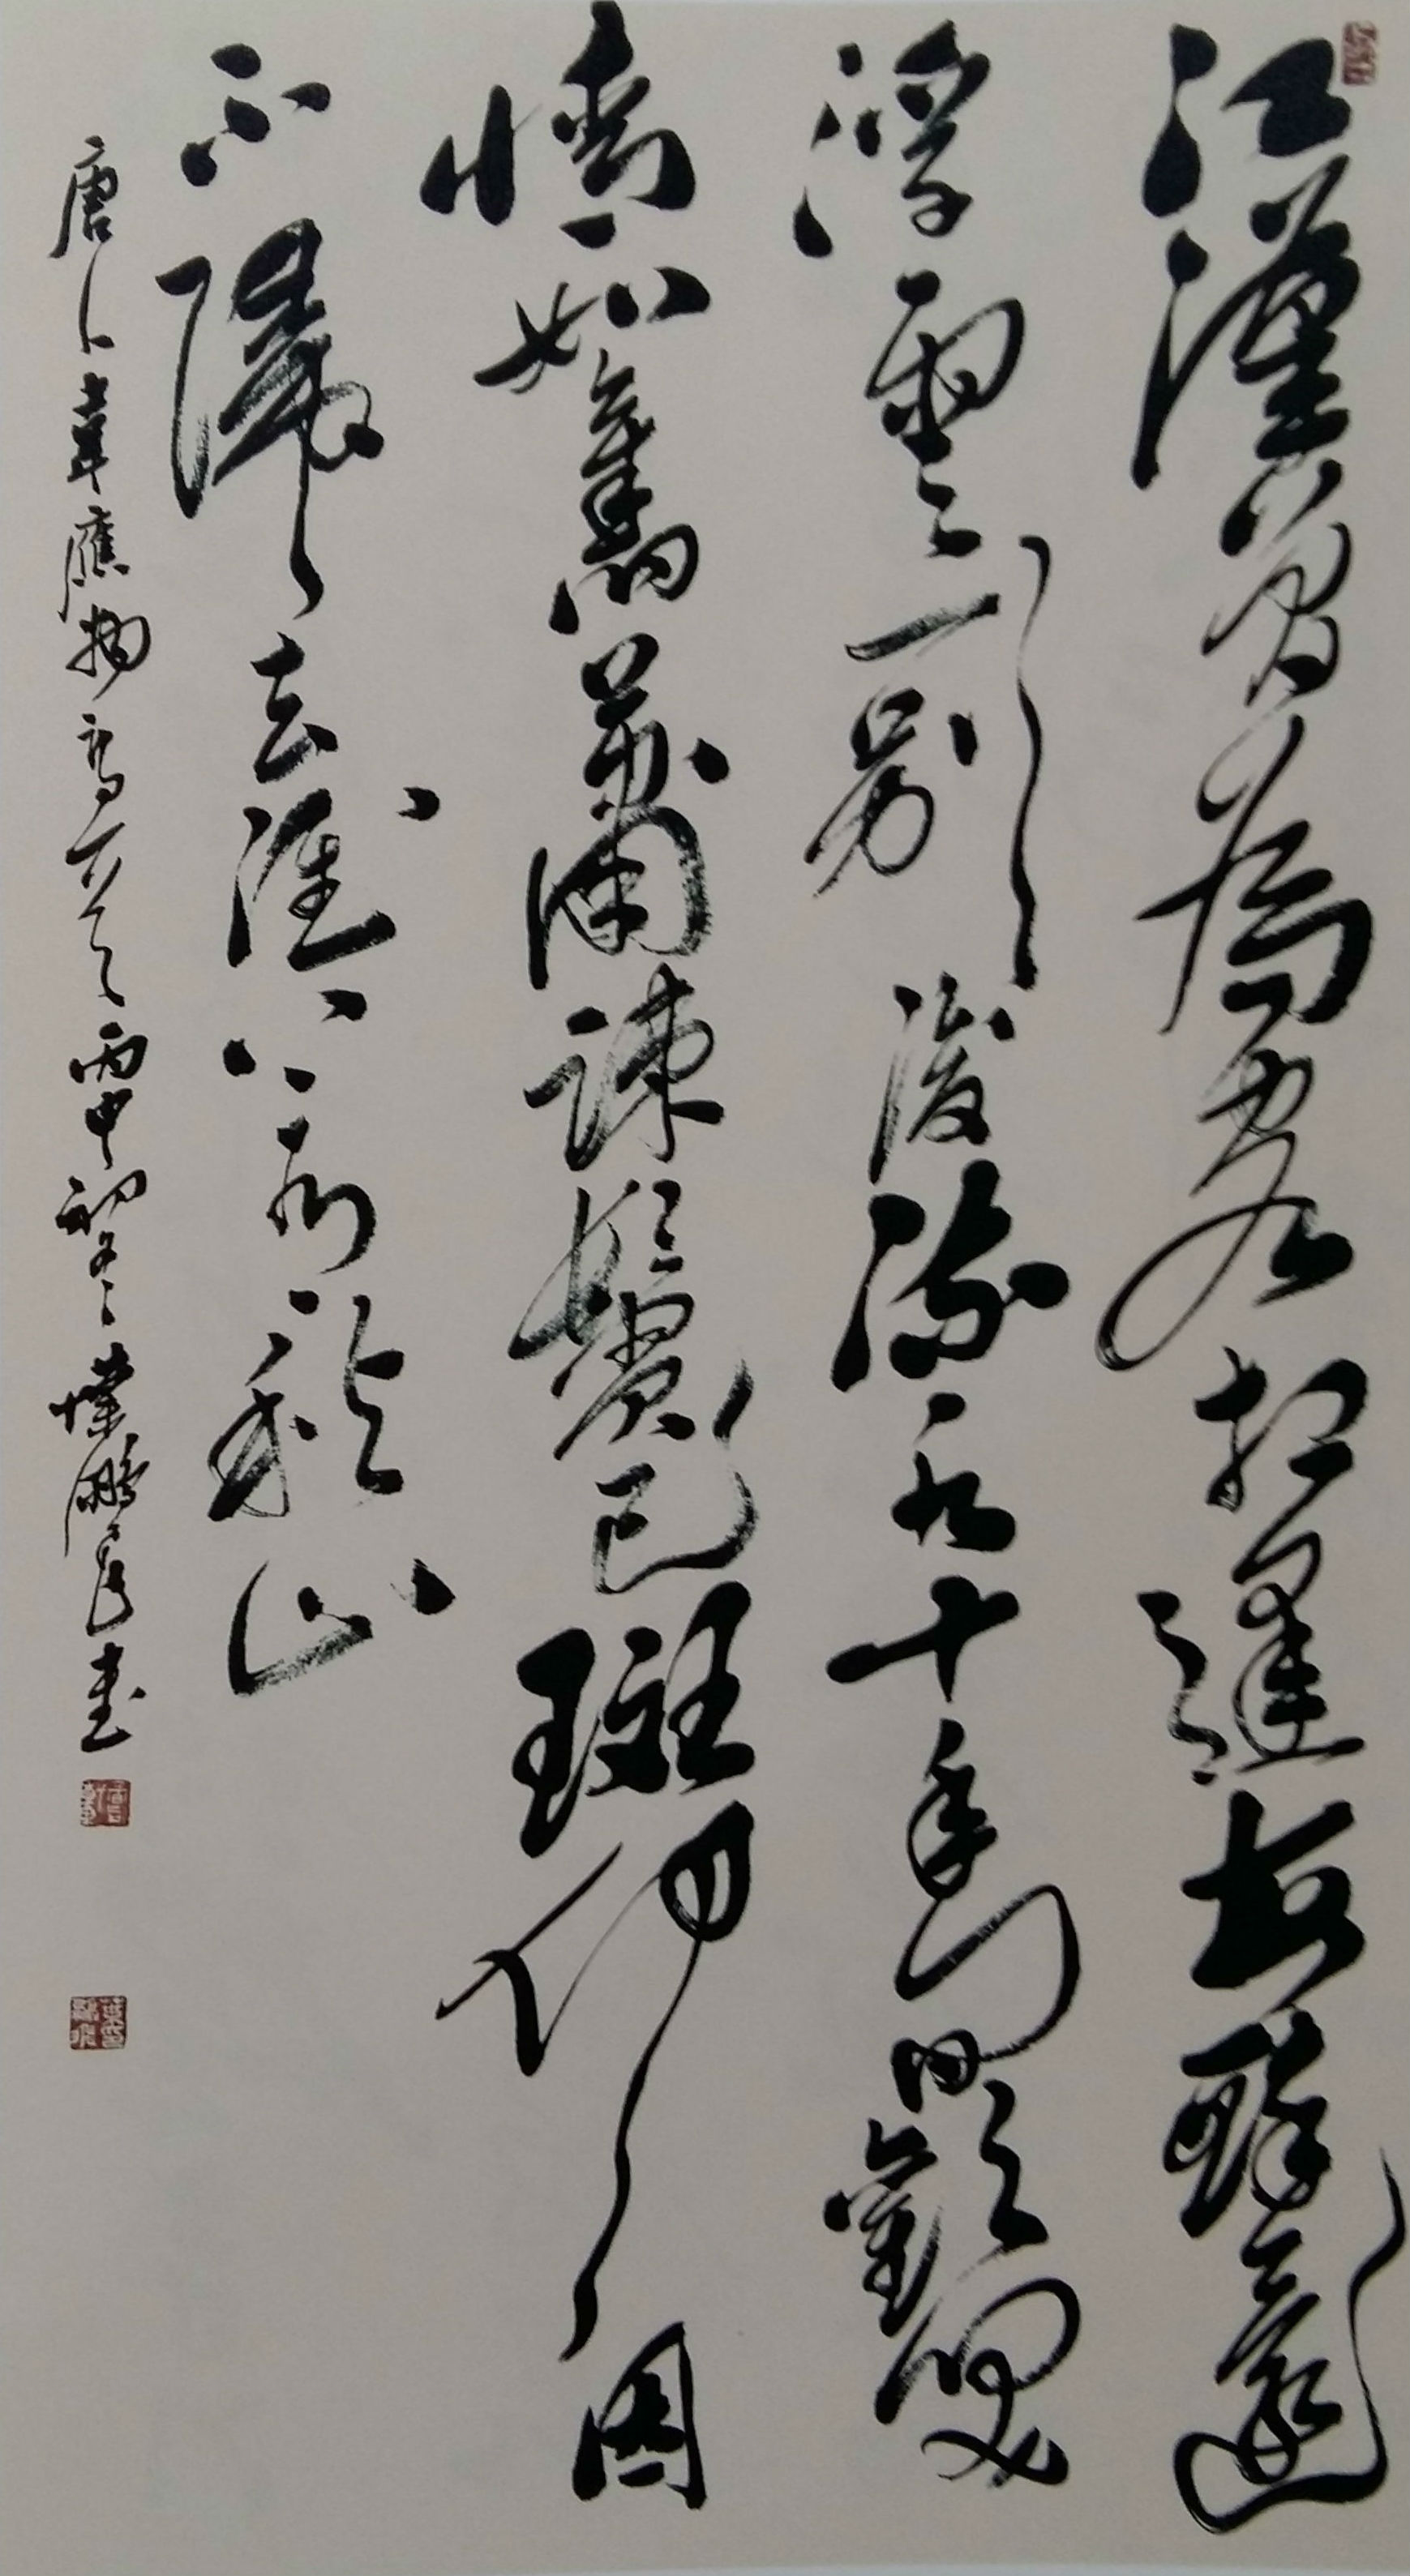 江漢曾為客相逢每醉還
浮雲一別後流水十年間歡笑
情如舊蕭疎鬢已斑何因
不歸去淮上有秋山
唐人韋應物 丙申初冬 鵬 書